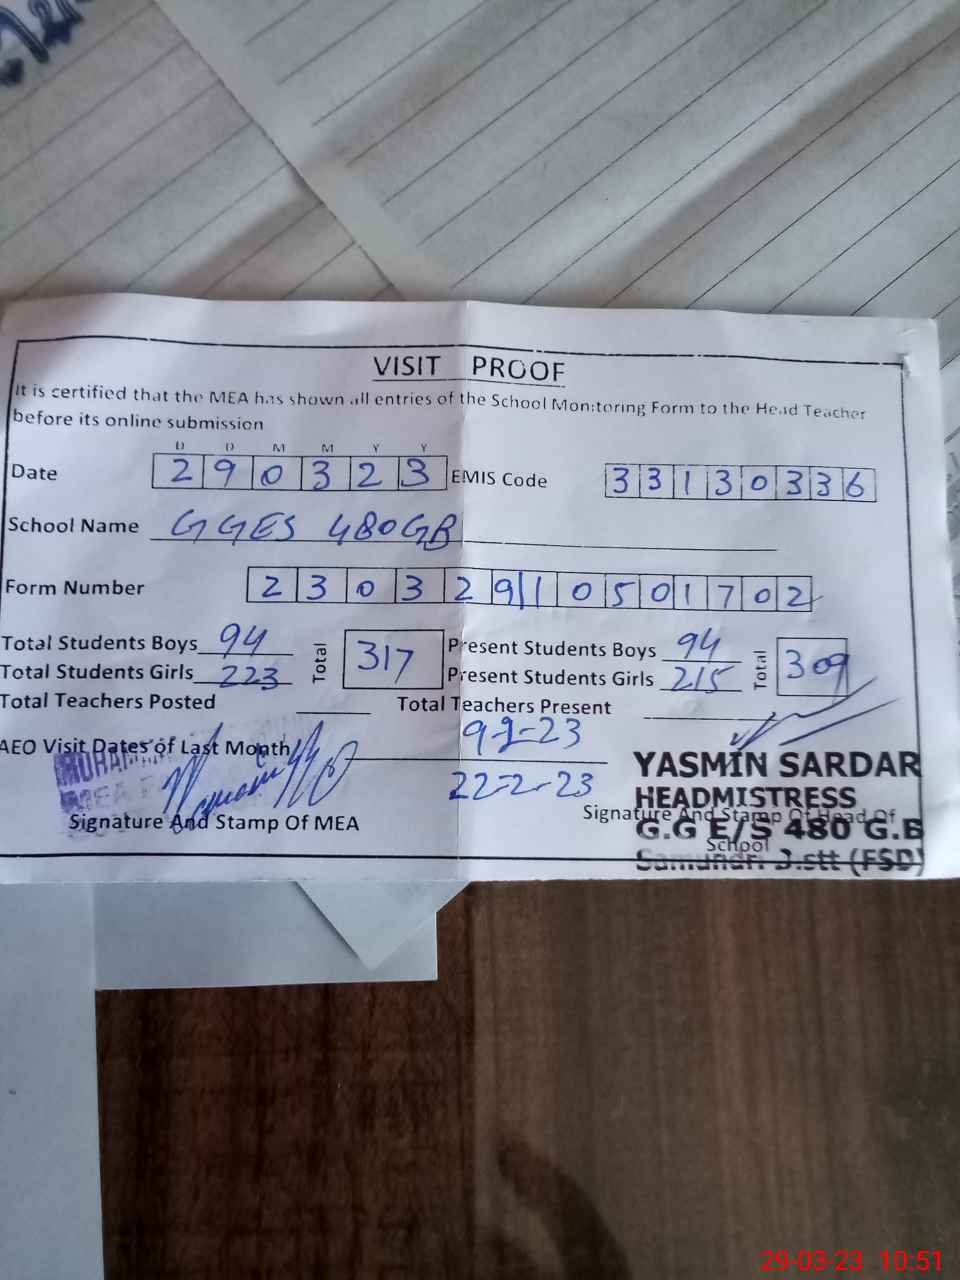 VISIT PROOF
It is certified that the MEA has shown all entries of the School Monitoring Form to the Head Teacher
before its online submission
D D M M Y Y
Date 2 9 0 3 2 3 EMIS Code 3 3 1 3 0 3 3 6
School Name GGES 480GB
Form Number 2 3 0 3 2 9 1 1 0 5 0 1 7 0 2
Total Students Boys 94 Total 317 Present Students Boys 94 Total 309
Total Students Girls 223 Present Students Girls 215
Total Teachers Posted Total Teachers Present
AEO Visit Dates of Last Month 9-2-23
22-2-23
YASMIN SARDAR
HEADMISTRESS
Signature And Stamp Of MEA
Signature And Stamp Of Head Of
School
G.G E/S 480 G.B
(FSD)
29-03-23 10:51